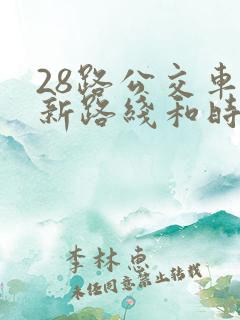 28路公交车
新路线和时
李林惠
未经同意禁止转载